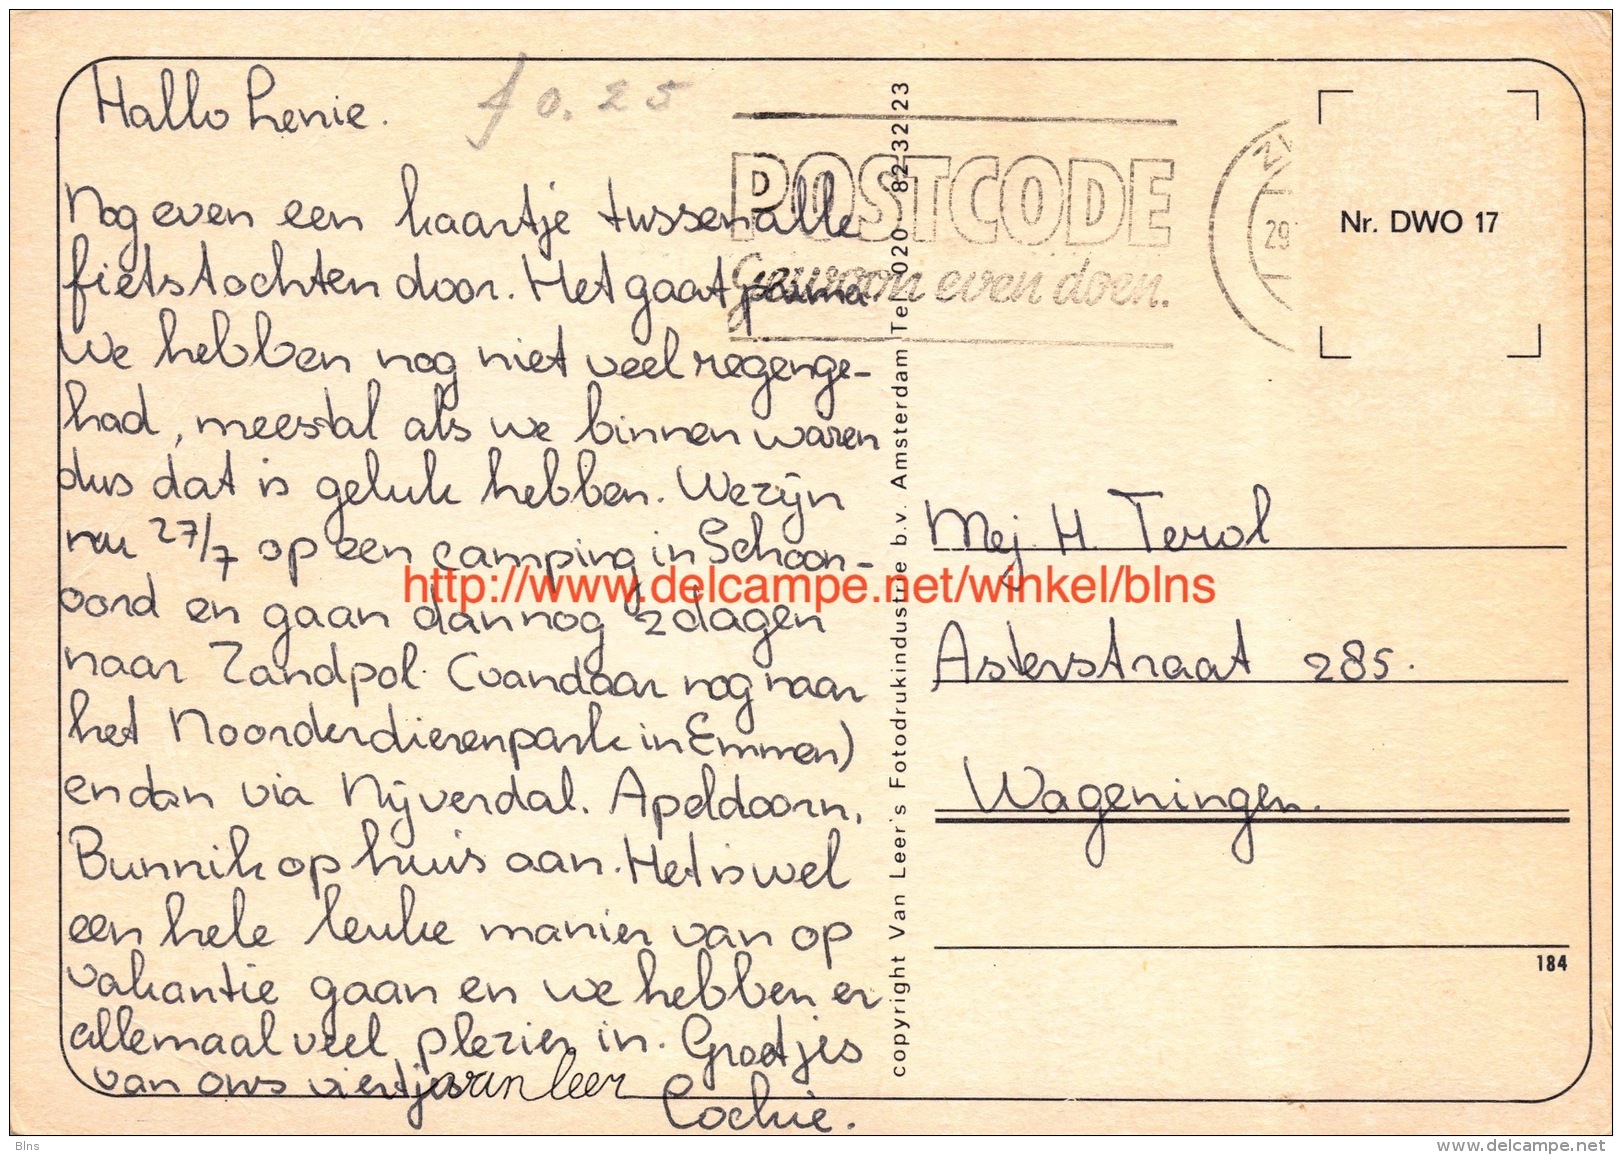 Hallo Henie.
f 0.25
Nog even een kaartje tussen alle
fietstochten door. Het gaat prima
We hebben nog niet veel regenge-
had, meestal als we binnen waren
dus dat is geluk hebben. We zijn
nu 27/7 op een camping in Schoon-
oord en gaan dan nog 2 dagen
naar Zandpol (vandaar nog naar
het Noorderdierenpark in Emmen)
en dan via Nijverdal. Apeldoorn,
Bunnik op huis aan. Het is wel
een hele leuke manier van op
vakantie gaan en we hebben er
allemaal veel plezier in. Groetjes
van ons viertjes
van leer
Cockie.
POSTCODE
Gewoon even doen.
29
Nr. DWO 17
copyright Van Leer's Fotodrukindustrie b.v. Amsterdam Tel. 020 82 32 23
Mej. H. Terol
Asterstraat 285.
Wageningen.
184
http://www.delcampe.net/winkel/blns
Blns
www.delcampe.net